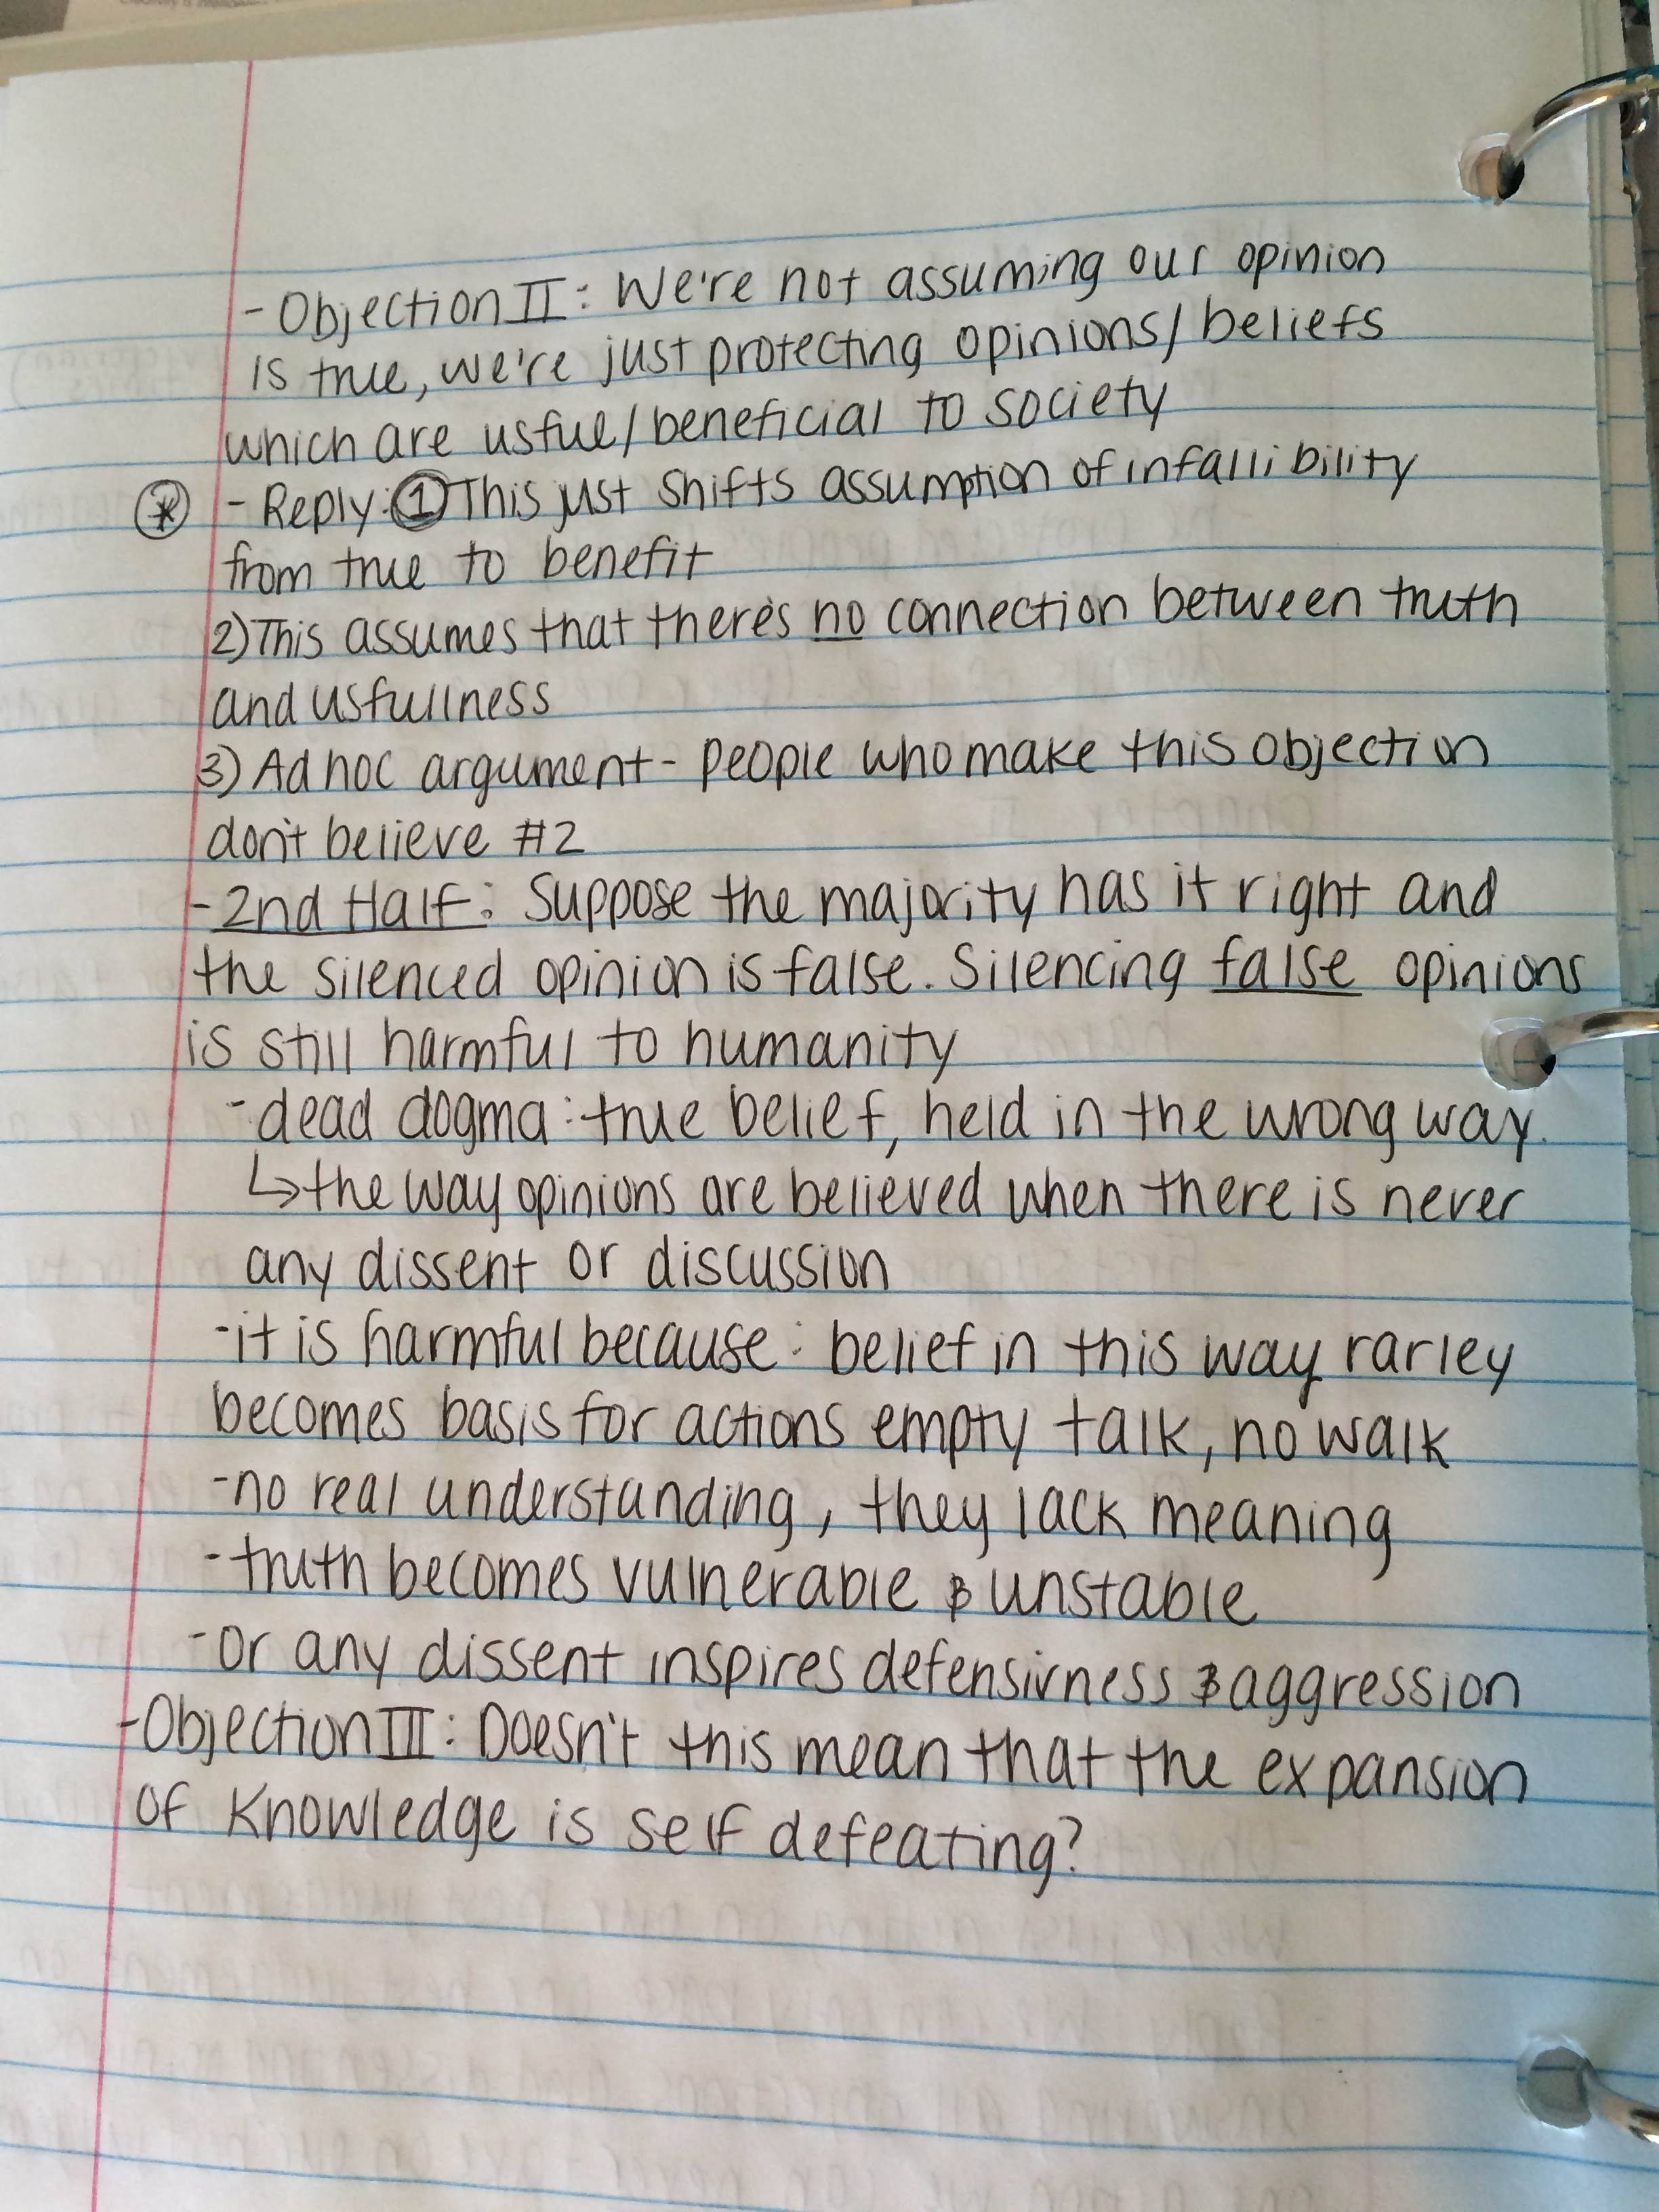 - Objection II: We're not assuming our opinion
is true, we're just protecting opinions/beliefs
which are usful/beneficial to society
* - Reply: 1 This just shifts assumption of infallibility
from true to benefit
2) This assumes that there's no connection between truth
and usfullness
3) Ad hoc argument - people who make this objection
don't believe #2
- 2nd Half: Suppose the majority has it right and
the silenced opinion is false. Silencing false opinions
is still harmful to humanity
- dead dogma: true belief, held in the wrong way.
↳ the way opinions are believed when there is never
any dissent or discussion
- it is harmful because: belief in this way rarley
becomes basis for actions empty talk, no walk
- no real understanding, they lack meaning
- truth becomes vulnerable & unstable
- or any dissent inspires defensivness & aggression
- Objection III: Doesn't this mean that the expansion
of knowledge is self defeating?